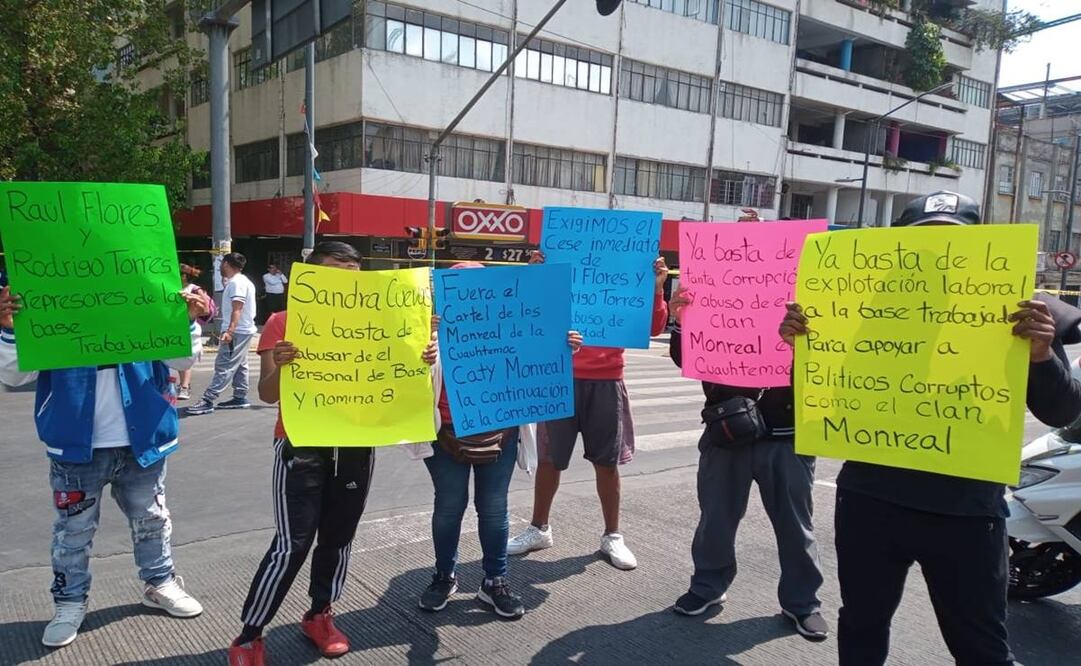 Raúl Flores
y
Rodrigo Torres
represores de la
base
Trabajadora
Sandra
Ya basta de
abusar de el
Personal de Base
y nomina 8
Fuera el
Cartel de los
Monreal de la
Cuauhtemac
Caty Monreal
la continuación
de la Corrupción
OXXO
2 $27
Exigimos el
Cese inmediato
de
Flores y
Torres
Ya basta de
tanta
y abuso de el
clan
Monreal
Cuauhtemoc
Ya basta de la
explotación laboral
a la base
Para apoyar a
Politicos Corruptos
como el clan
Monreal